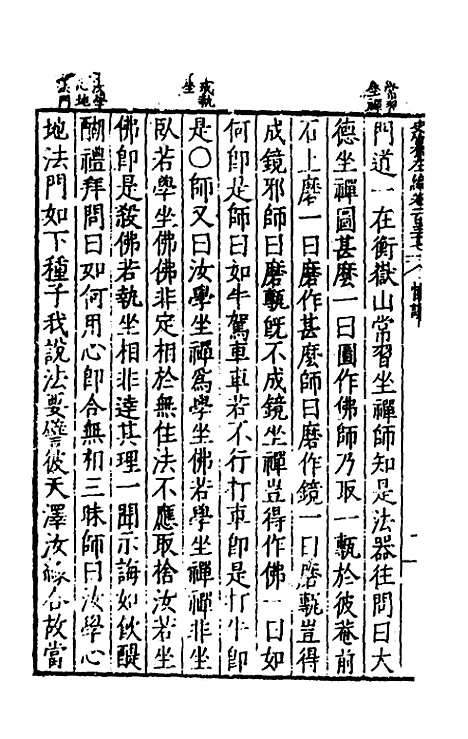 常習
坐禪
門道一在衡嶽山常習坐禪師知是法器往問曰大
德坐禪圖甚麼一曰圖作佛師乃取一甎於彼菴前
石上磨一曰磨作甚麼師曰磨作鏡一曰磨甎豈得
成鏡邪師曰磨甎旣不成鏡坐禪豈得作佛一曰如
何即是師曰如牛駕車車若不行打車即是打牛即
是〇師又曰汝學坐禪爲學坐佛若學坐禪禪非坐
臥若學坐佛佛非定相於無住法不應取捨汝若坐
佛即是殺佛若執坐相非達其理一聞示誨如飲醍
醐禮拜問曰如何用心即合無相三昧師曰汝學心
地法門如下種子我說法要譬彼天澤汝緣合故當
若執
坐
心地
法門